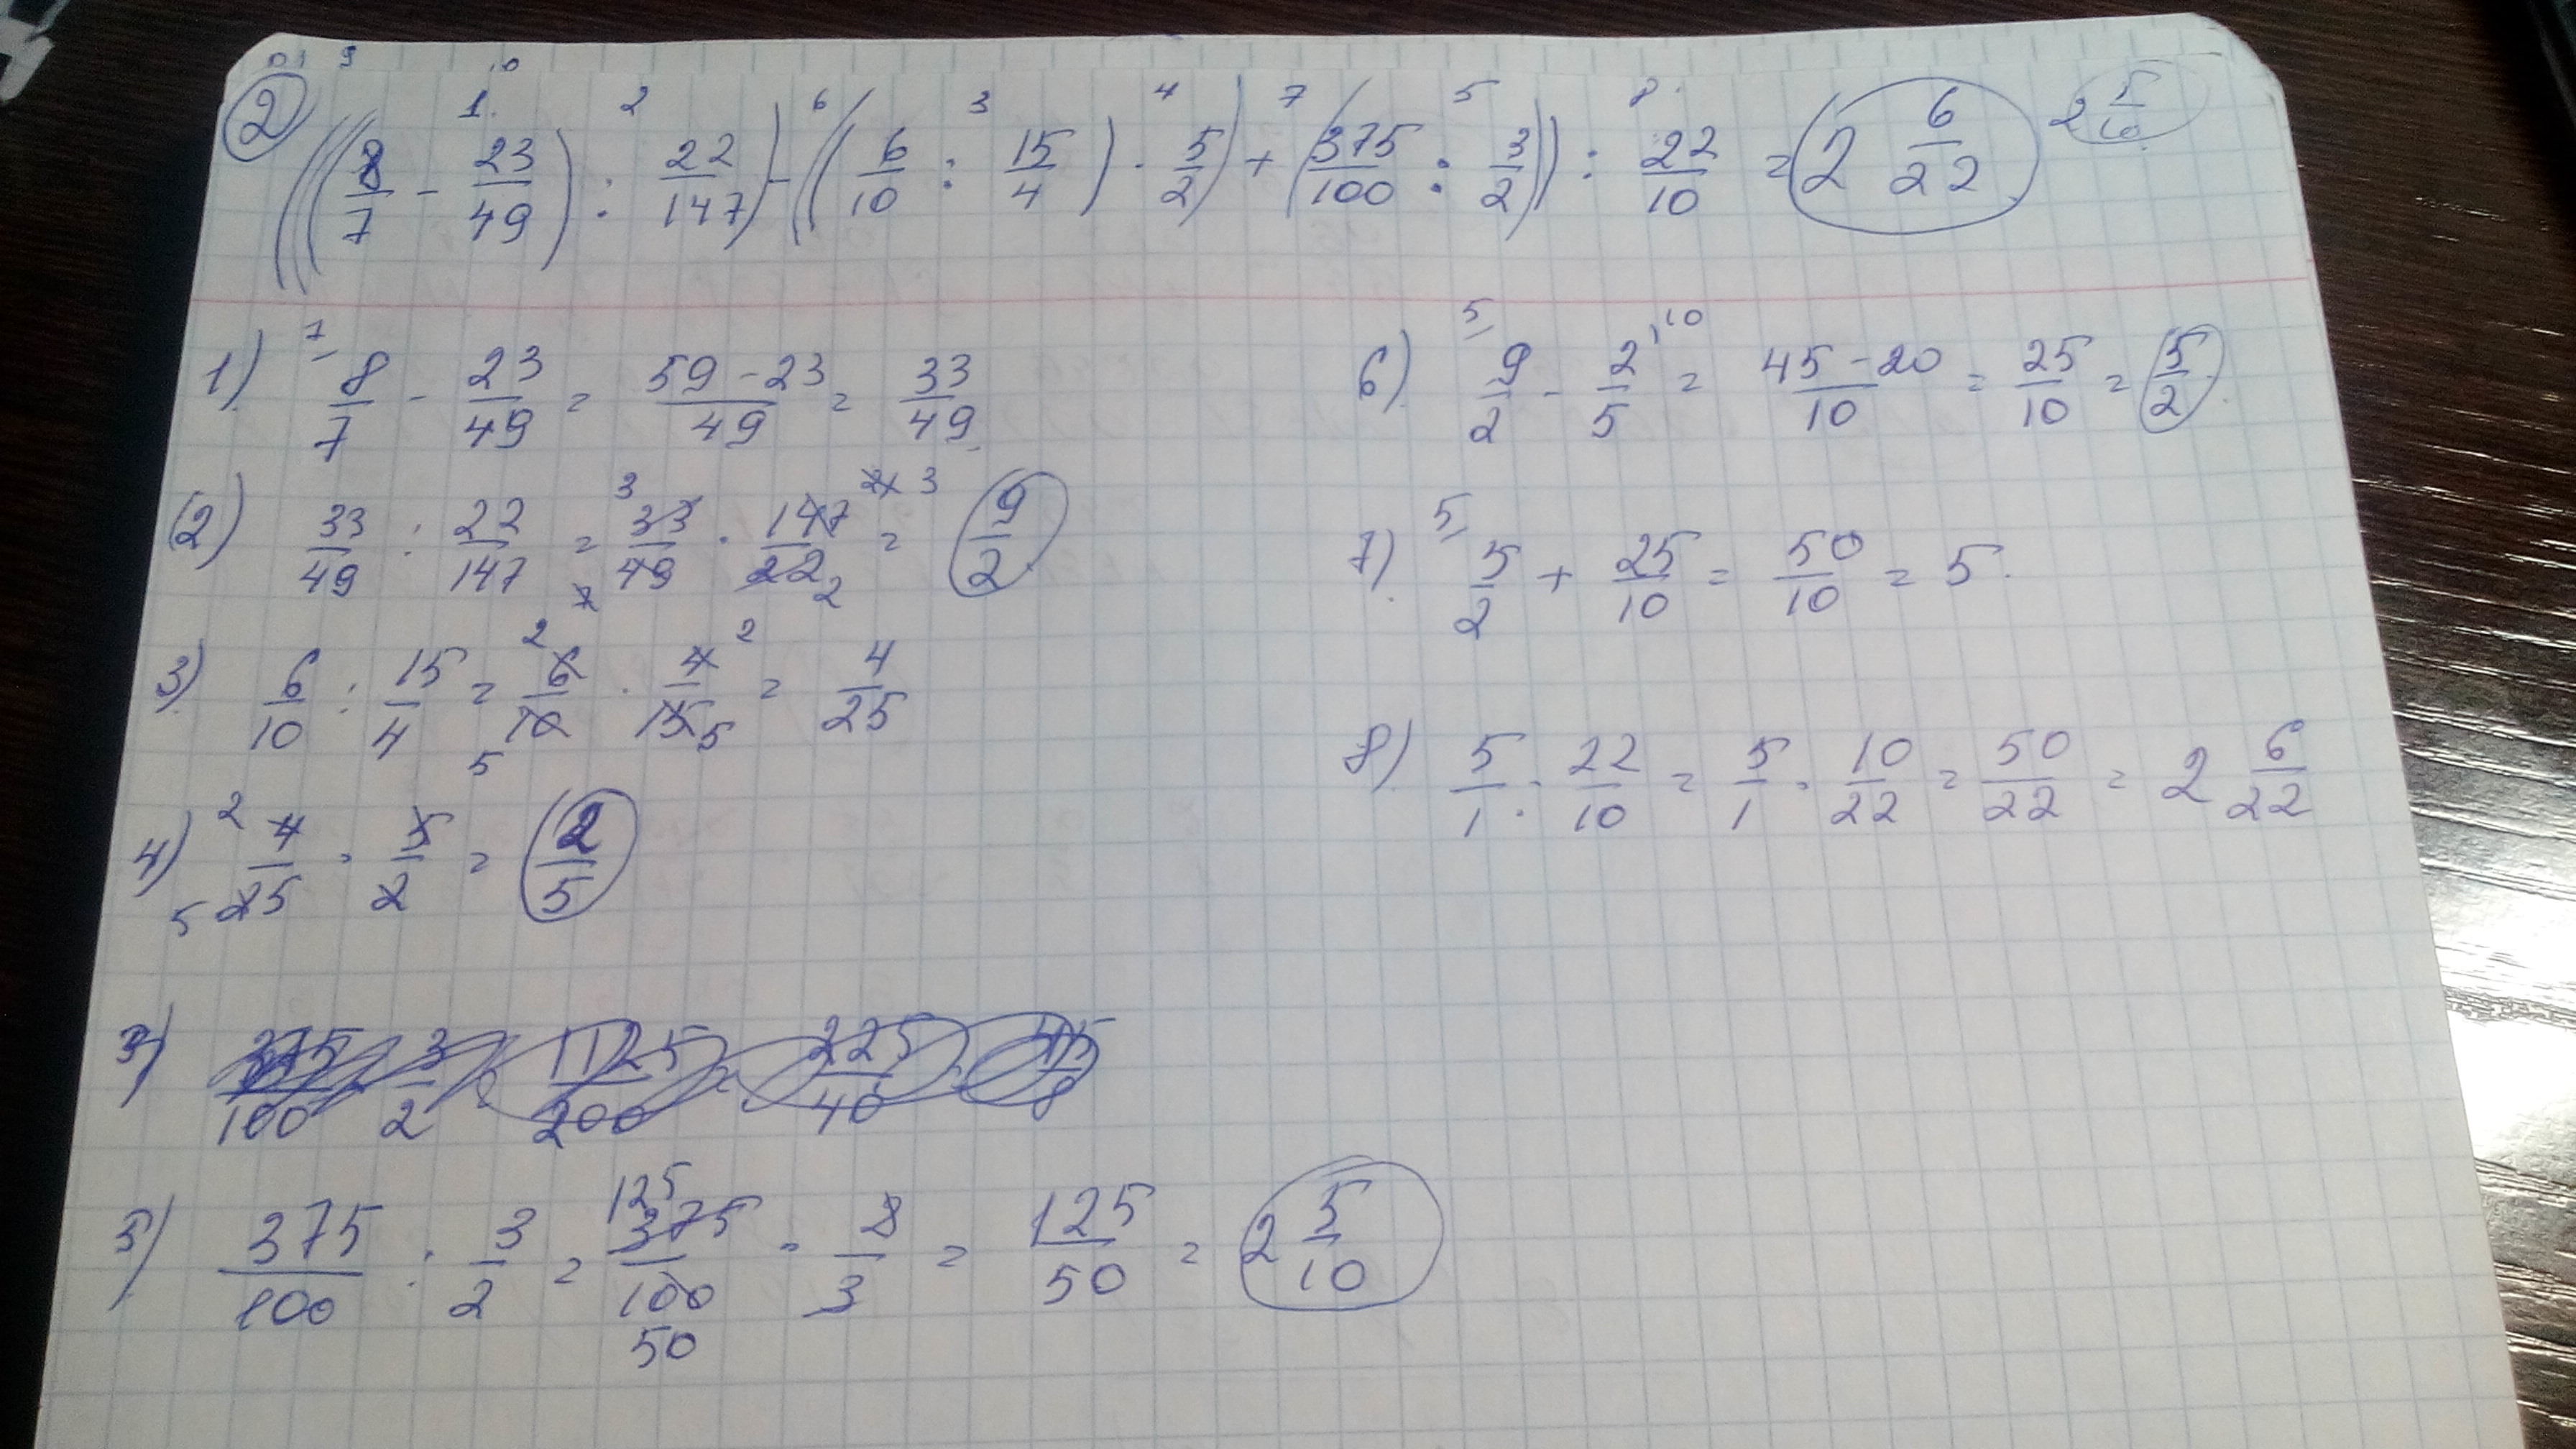 2
1. 2 6 3 4 7 5 8.
(((8/7 - 23/49) : 22/147) - ((6/10 : 15/4) · 5/2) + (375/100 : 3/2)) : 22/10 = 2 6/22 2 5/10
1) 7 8/7 - 23/49 = 59-23/49 = 33/49
(2) 33/49 : 22/147 = 33/49 · 147/22 = 9/2
3) 6/10 : 15/4 = 6/10 · 4/15 = 4/25
4) 4/25 · 5/2 = 2/5
5) 375/100 : 3/2 = 375/100 · 2/3 = 125/50 = 2 5/10
6) 5 9/2 - 2/5 10 = 45-20/10 = 25/10 = 5/2
7) 5 5/2 + 25/10 = 50/10 = 5.
8) 5/1 : 22/10 = 5/1 · 10/22 = 50/22 = 2 6/22